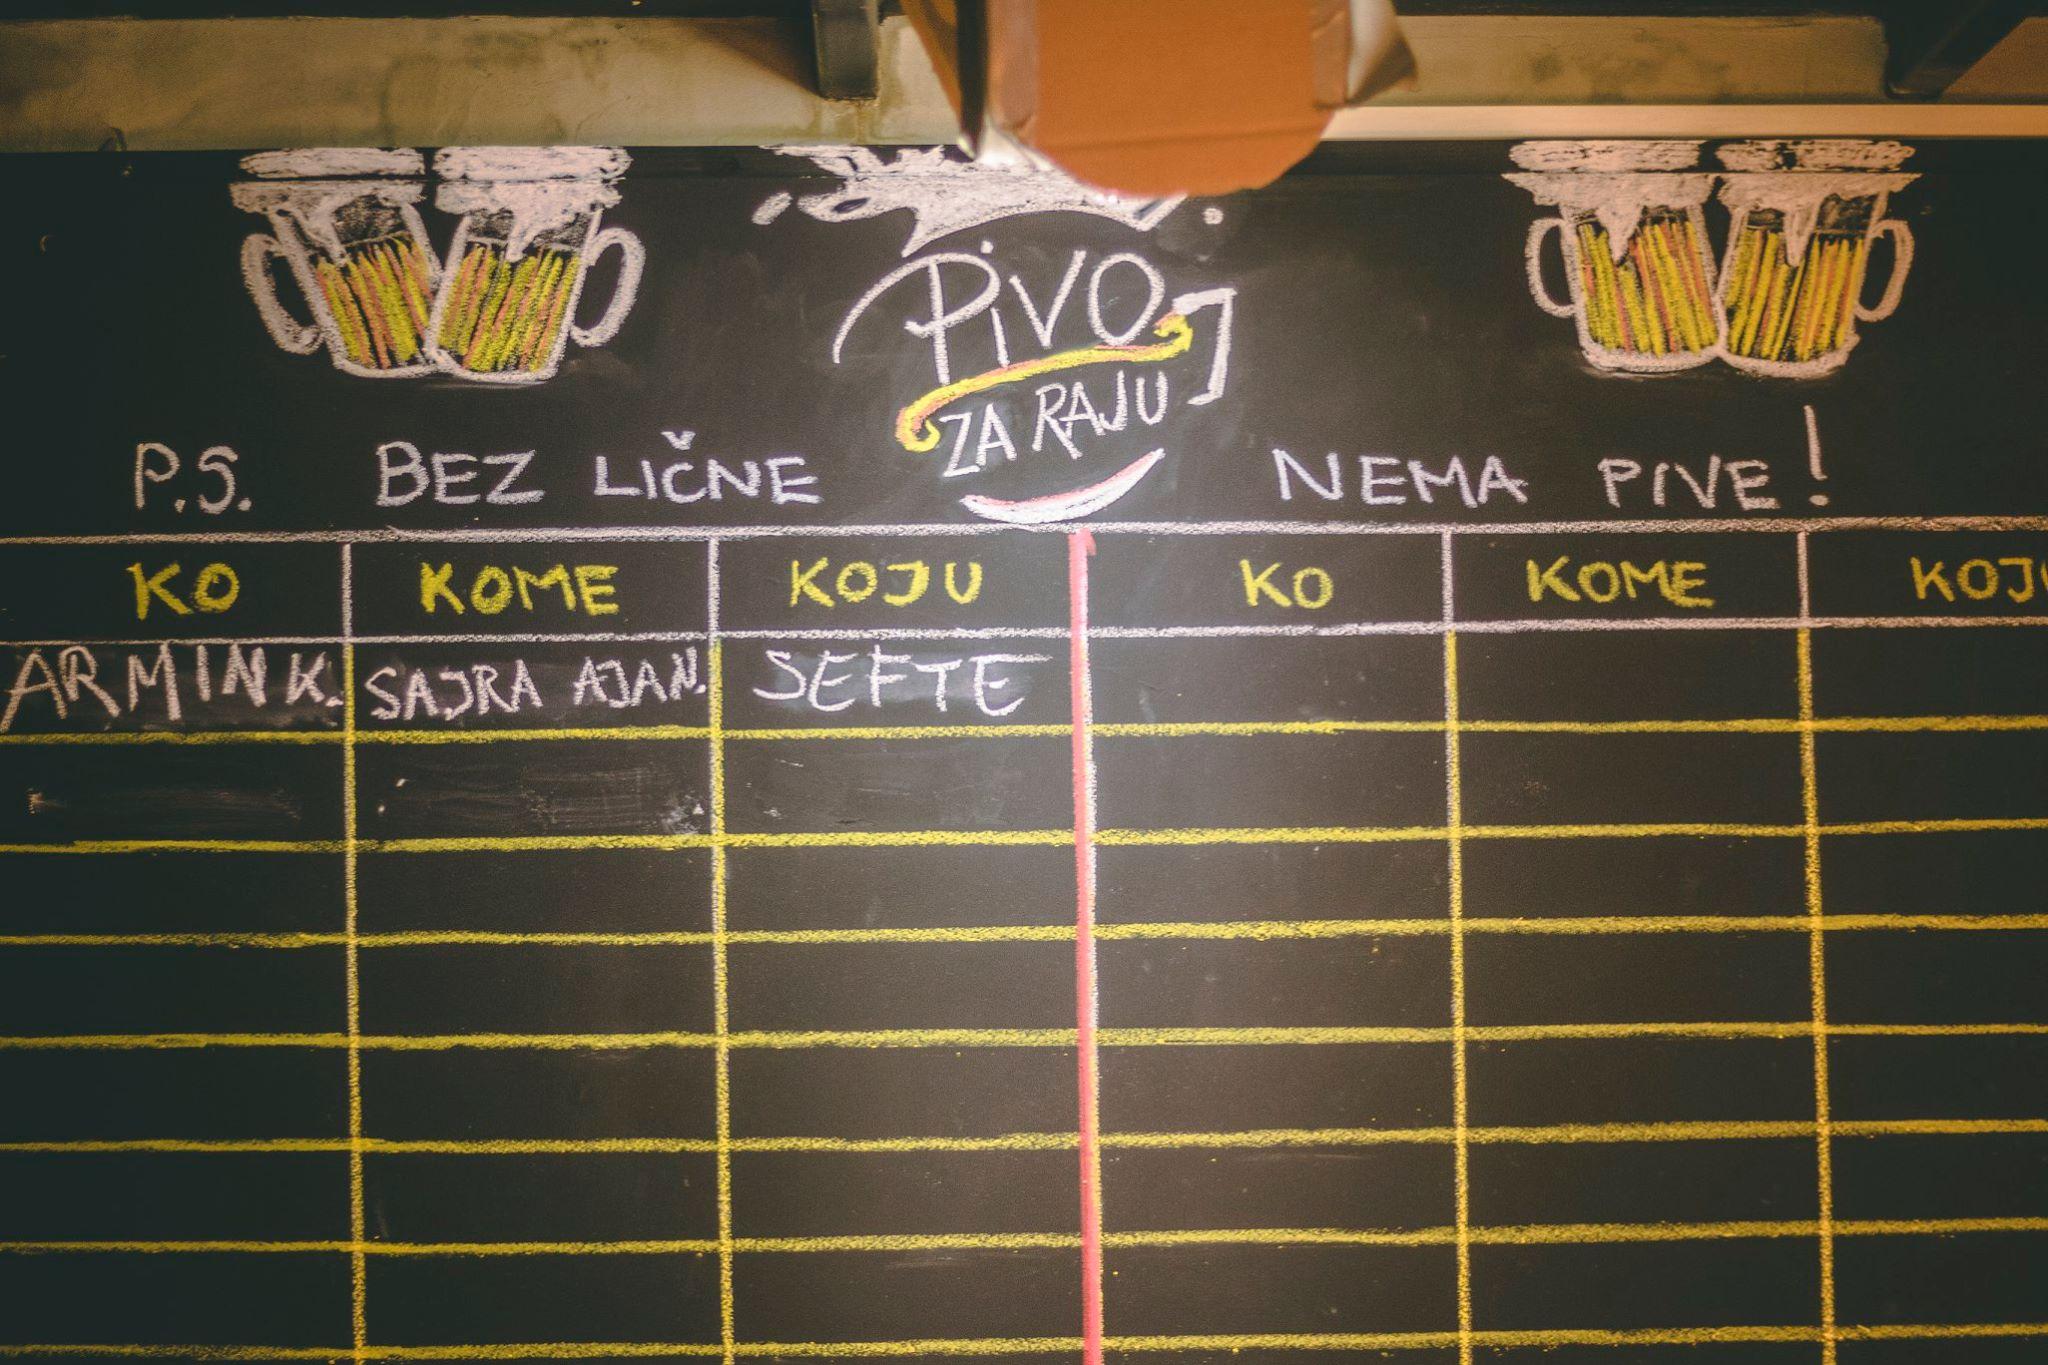 PIVO
ZA RAJU
P.S. BEZ LIČNE NEMA PIVE!
KO KOME KOJU KO KOME KOJU
ARMIN K. SAJRA AJAN. SEFTE